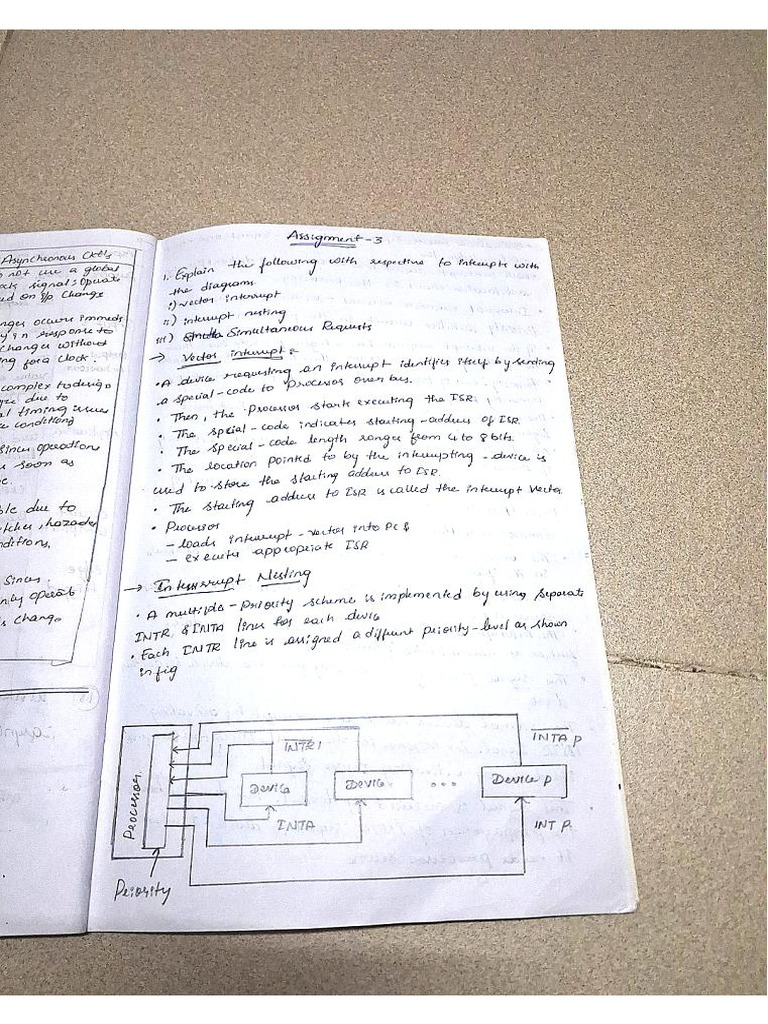 Asynchronous Ckt's
not use a global
signal. Operate
on i/p change
occurs immedi
in response to
changes without
ing for a clock.
complex to design
due to
timing issues
conditions
operation
soon as
due to
hazards
nditions.
Since
operate
change
Assignment - 3
1. Explain the following with respective to interupts with
the diagrams
i) vector interrupt
ii) interrupt nesting
iii) Simultaneous Requests
→ Vector interrupt :
• A device requesting an interrupt identifies itself by sending
a special-code to processor over bus.
• Then, the Processor starts executing the ISR.
• The special-code indicates starting-address of ISR.
• The special-code length ranges from 4 to 8 bits.
• The location pointed to by the interrupting-device is
used to store the starting address to ISR.
• The starting address to ISR is called the interrupt vector
• Processor
– loads interrupt-vector into PC &
– executes appropriate ISR
→ Interrupt Nesting
• A multiple-Priority scheme is implemented by using separate
INTR & INTA lines for each device
• Each INTR line is assigned a different priority-level as shown
in fig
INTR 1
INTA P
Processor
Device
Device
...
Device P
INTA
INT P.
Priority